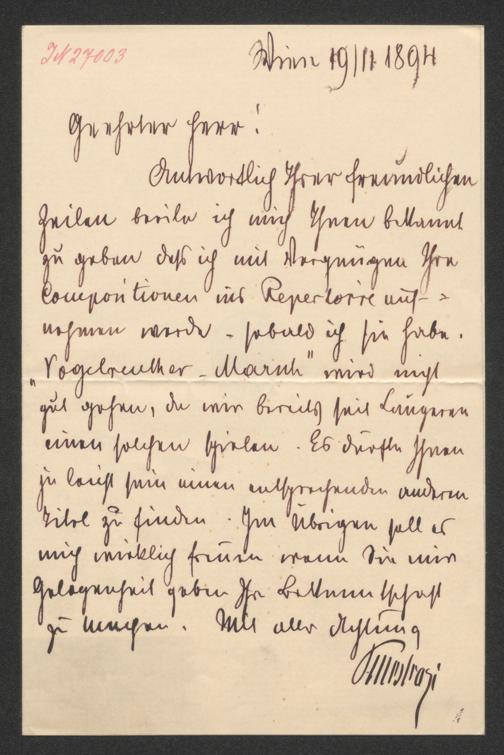 IN 27003
Wien 19/11 1894
Geehrter Herr!
Antwortlich Ihrer freundlichen
Zeilen beeile ich mich Ihnen bekannt
zu geben daß ich mit Vergnügen Ihre
Compositionen ins Repertoire auf-
nehmen werde - sobald ich sie habe.
"Vogelreuther-Marsch" wird nicht
gut gehen, da wir bereits seit Längerem
einen solchen spielen. Es dürfte Ihnen
ja leicht sein einen entsprechenden anderen
Titel zu finden. Im Übrigen soll es
mich wirklich freuen wenn Sie mir
Gelegenheit geben Ihre Bekanntschaft
zu machen. Mit aller Achtung